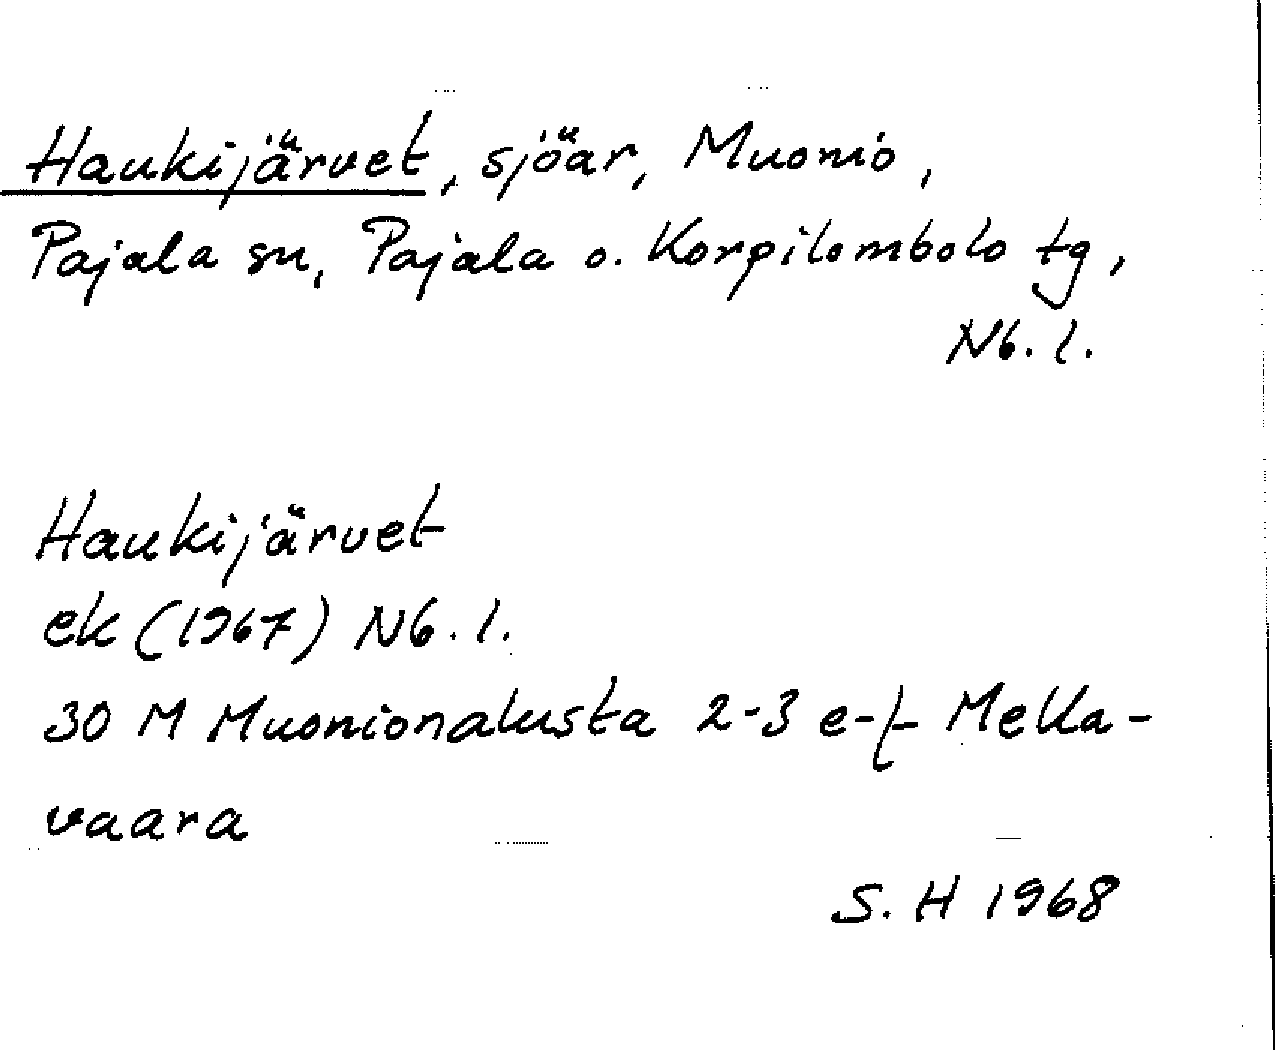 Haukijärvet, sjöar, Muonio,
Pajala sn, Pajala o. Korpilombolo tg,
Nb. l.
Haukijärvet
ek (1967) Nb. l.
30 M Muonionalusta 2-3 e-f Mella-
vaara
S. H 1968